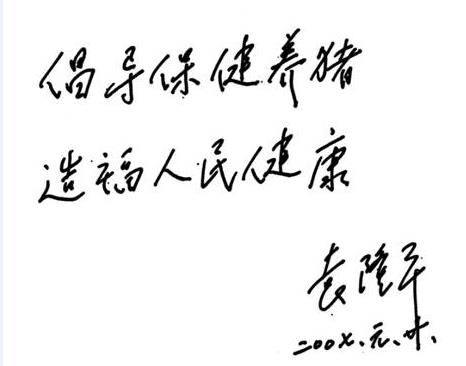 倡导保健养猪
造福人民健康
袁隆平
二00七.元.廿.